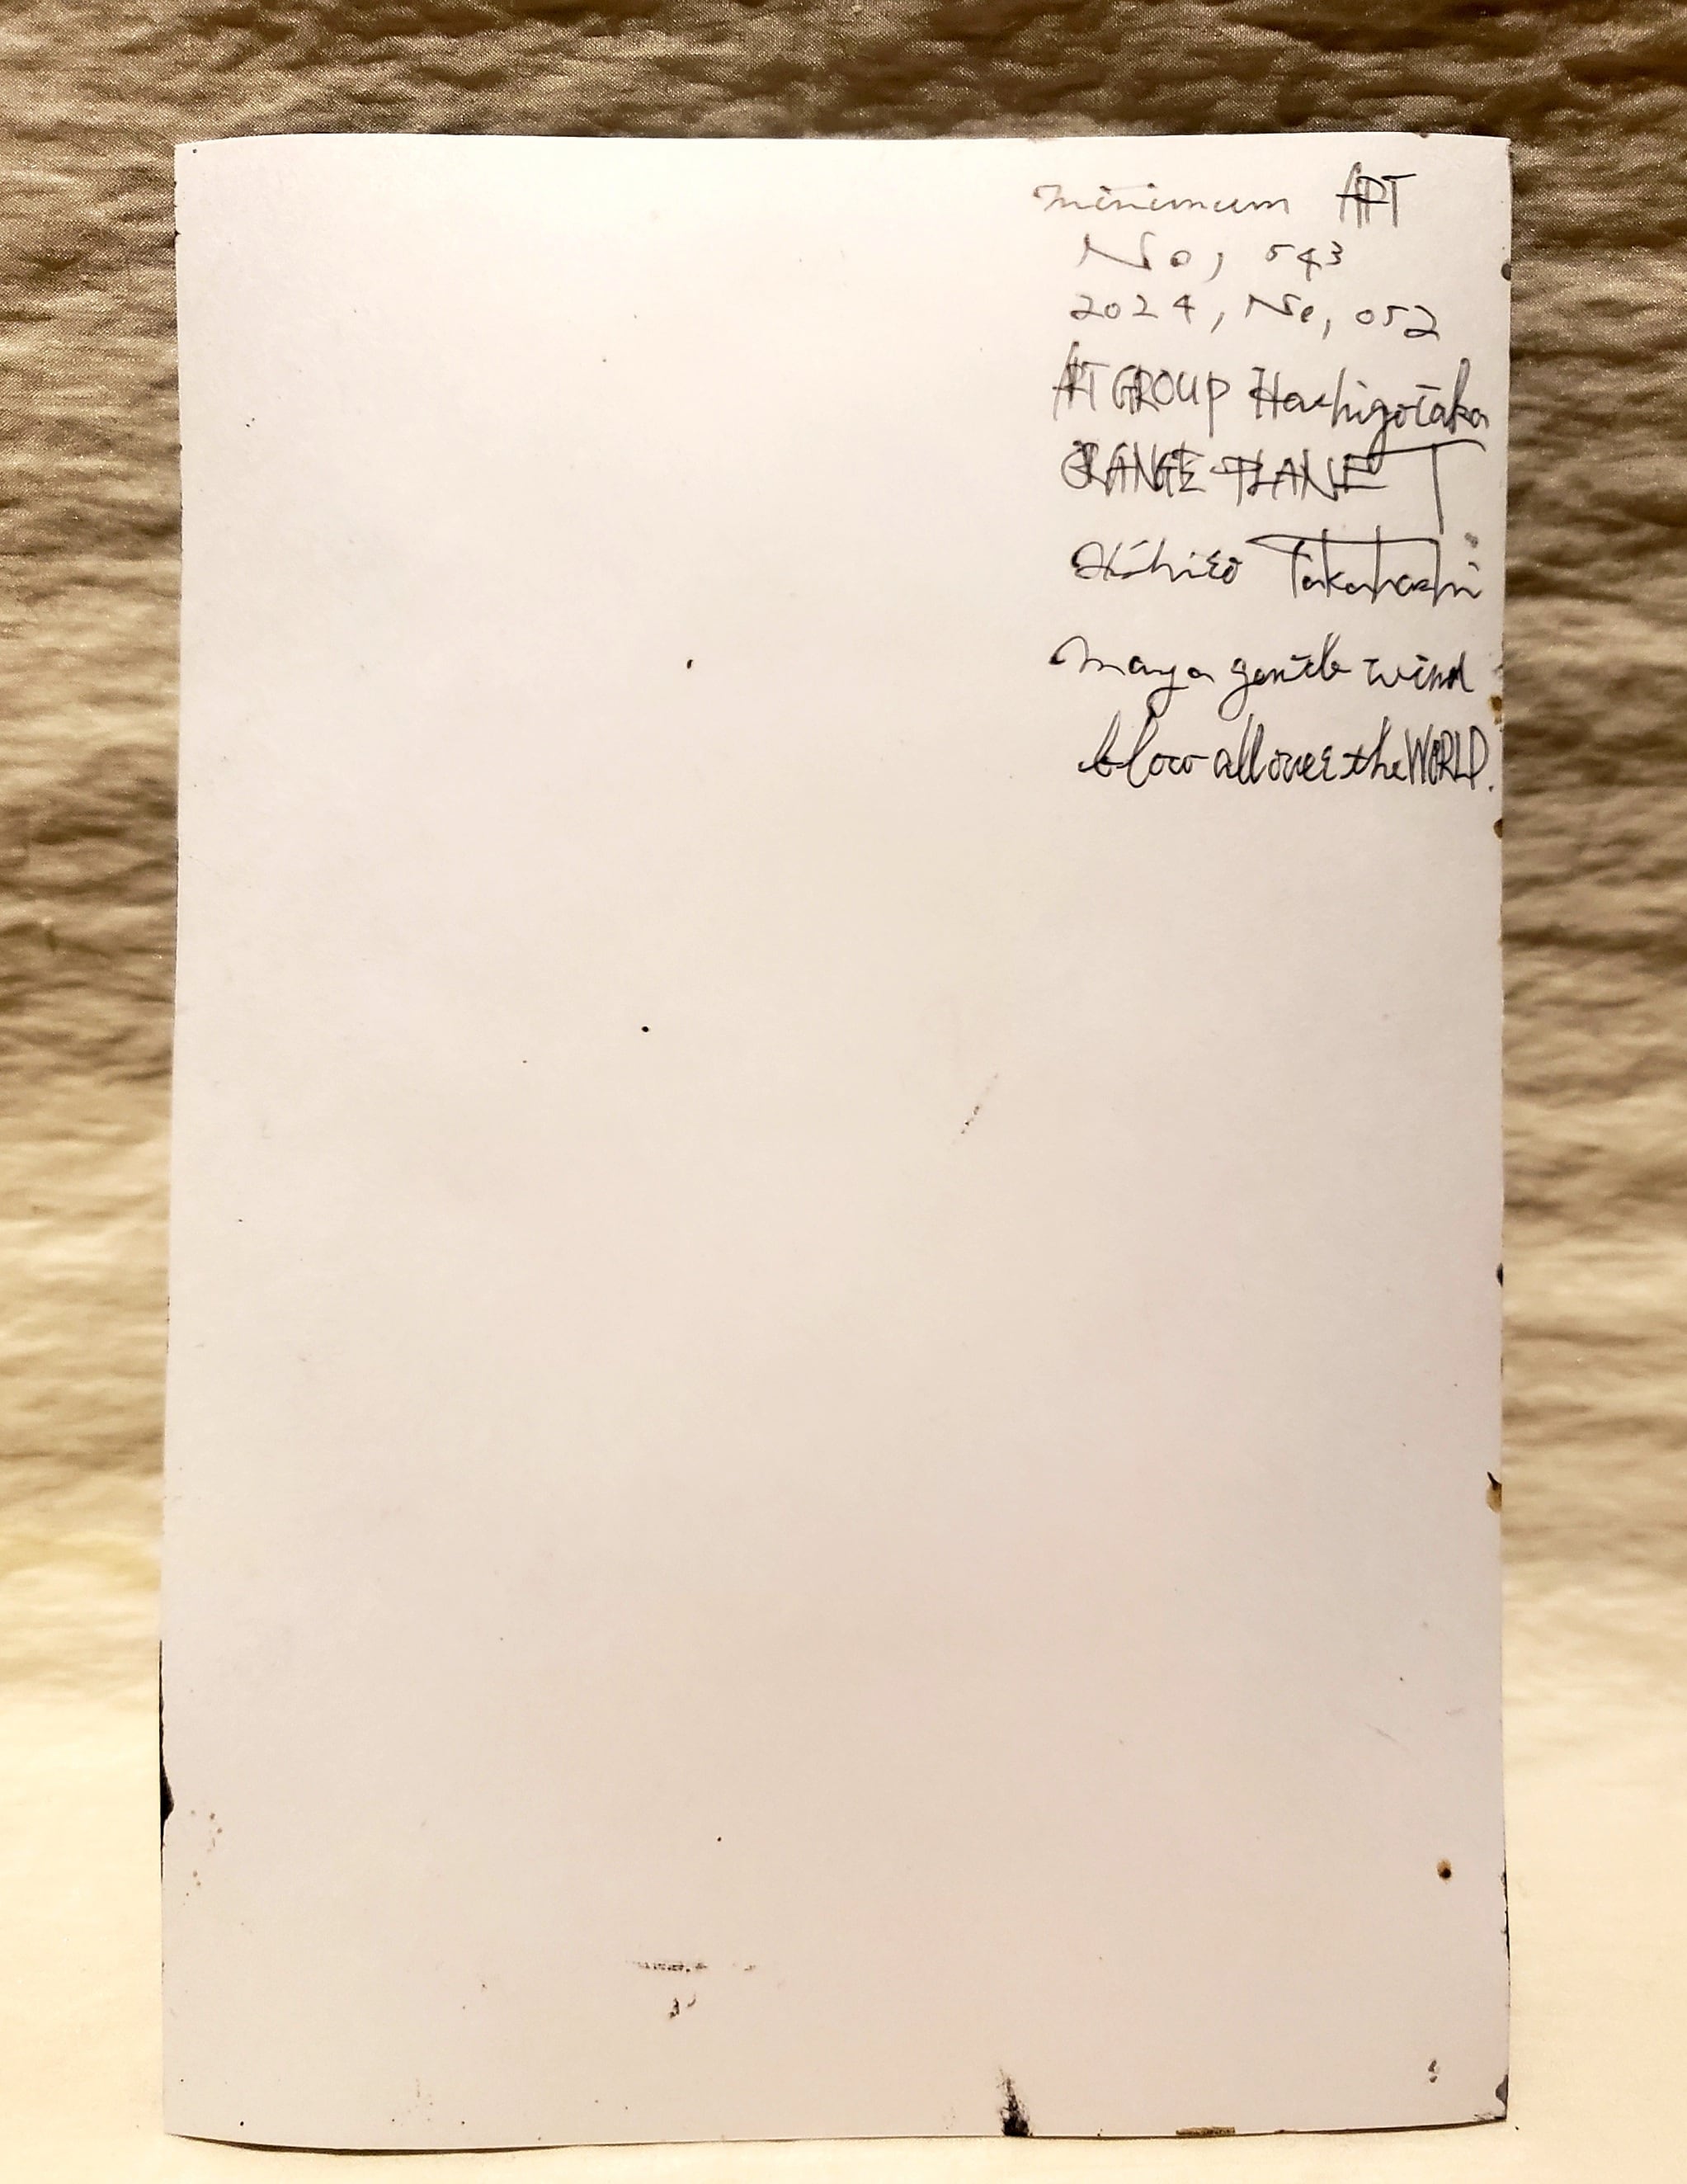 minimum ART
No, 543
2024, No, 052
ART GROUP Hashigotaka
ORANGE PLANET
Takahashi
may a gentle wind
blow all over the WORLD.